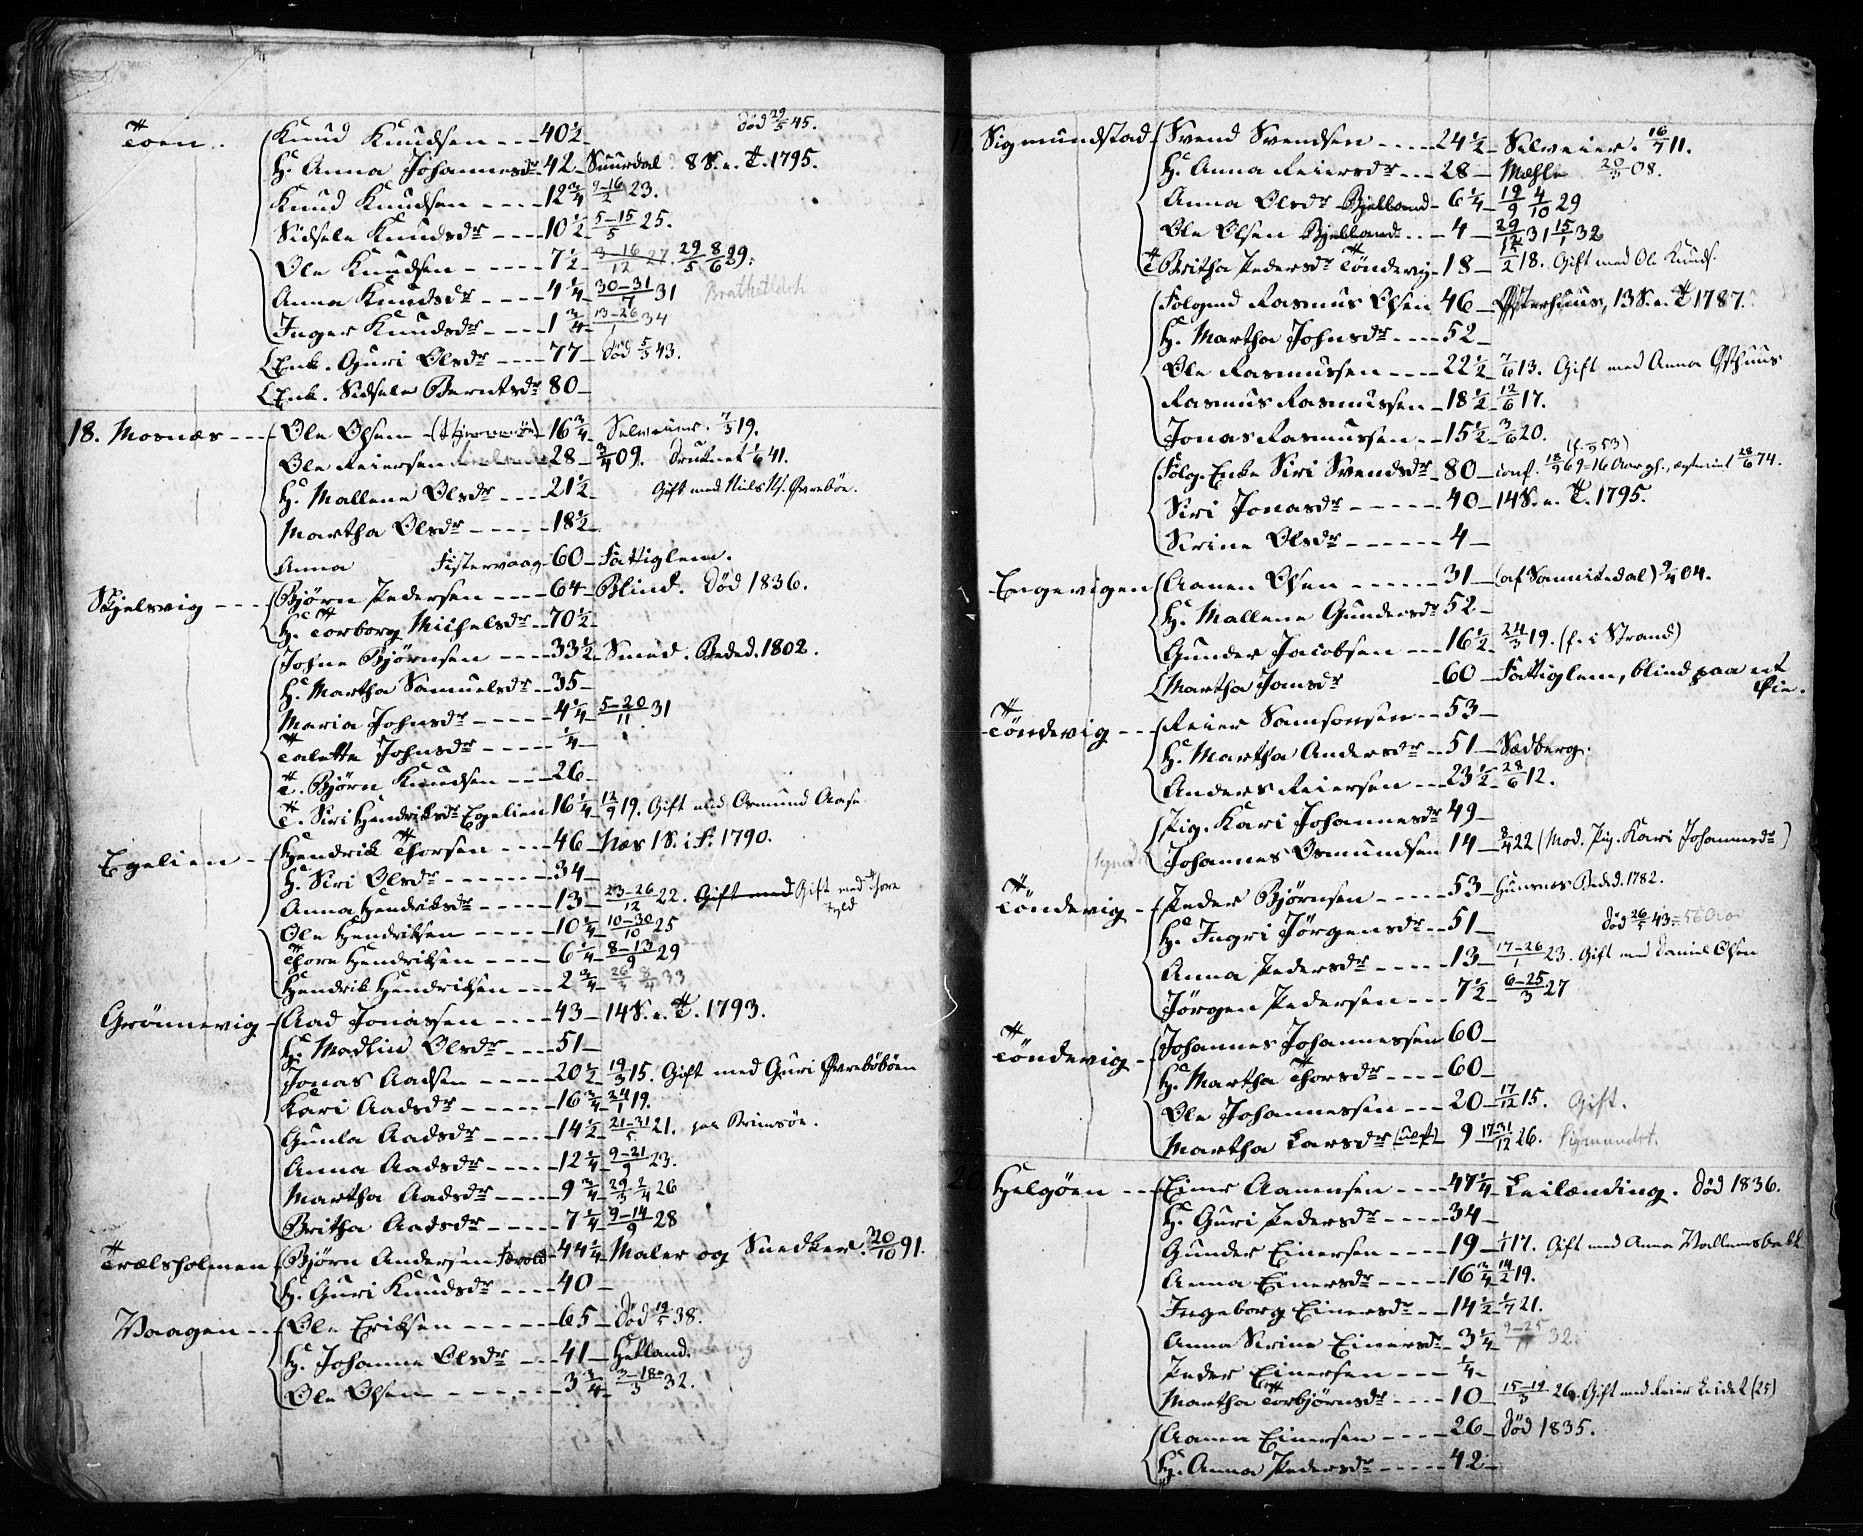 Toen. Knud Knudsen 40 1/2 død 29/5 45.
H: Anna Johannesdr 42 Suurdal 8 S. e. T. 1795.
Knud Knudsen 12 3/4 9-16/2 23.
Sidsele Knudsdr 10 1/2 5-15/5 25.
Ole Knudsen 7 1/2 3-16/12 27. 29/5 8/6 29.
Anna Knudsdr 4 1/4 30-31/7 31
Inger Knudsdr 1 3/4 13-26/1 34
Enk. Guri Olsdr 77 død 5/3 43.
Enk. Sidsele Berntsdr 80
18. Mosnæs Ole Olsen 16 3/4 Selveier. 7/3 19.
Ole Reiersen 28 3/4 09. Druknet 1/6 41.
H: Mallene Olsdr 21 1/2 Gift med Niels N. Øvrebøe.
Martha Olsdr 18 1/2
Anna Fistervaag 60 Fattiglem.
Skjelsvig Bjørn Pedersen 64 Blind. Død 1836.
H: Torborg Michelsdr 70 1/2
Johne Bjørnsen 33 1/2 Smed. Beded. 1802.
H: Martha Samuelsdr 35
Maria Johnsdr 4 1/4 5-20/11 31
Talette Johnsdr 1/4
T. Bjørn Knudsen 26
T. Siri Hendriksdr Egelien 16 1/4 12/9 19. Gift med Osmund Aase
Egelien Hendrik Thorsen 46 Næs 1 S. i F. 1790.
H: Siri Olsdr 34
Anna Hendriksdr 13 23-26/12 22. Gift med Gift med Thore
Ole Hendriksen 10 1/4 10-30/10 25
Thore Hendriksen 6 1/4 8-13/9 29
Hendrik Hendriksen 2 3/4 33
Grønnevig Aad Jonassen 43 14 S. e. T. 1793.
H: Madlin Olsdr 51
Jonas Aadsen 20 1/2 19/3 15. Gift med Guri Øvrebøbøen
Kari Aadsdr 16 3/4 24/1 19.
Gunla Aadsdr 14 1/2 21-31/5 21. paa Brimsøe.
Anna Aadsdr 12 1/4 9-21/9 23.
Martha Aadsdr 9 3/4 29/3 2/4 26
Britha Aadsdr 7 1/4 9-14/9 28
Trælsholmen Bjørn Andersen 44 1/4 Maler og Snedker. 30/10 91.
H: Guri Knudsdr 40
Vaagen Ole Eriksen 65 død 19/5 38.
H: Johanne Olsdr 41 Helland.
Ole Olsen 3 3/4 3-18/3 32.
Sigmundstad Svend Svendsen 24 1/2 Selveier. 16/7 11.
H: Anna Reiersdr 28 Mæhle 20/3 08.
Anna Olsdr Bjelland 6 1/4 19/9 4/10 29
Ole Olsen Bjelland 4 29/12 31 15/1 32
T Britha Pedersdr Tøndevig 18 15/2 18. Gift med Ole Knuds.
Følgmd Rasmus Olsen 46 Østerhuus, 13 S. e. T. 1787.
H: Martha Johnsdr 52
Ole Rasmussen 22 1/2 7/6 13. Gift med Anna Østhuus
Rasmus Rasmussen 18 1/2 12/6 17.
Jonas Rasmussen 15 1/2 3/6 20.
Følg. Enke Siri Svendsdr 80 conf. 18/9 69=16 Aar gl.
Siri Jonasdr 40 14 S. e. T. 1795.
Serine Olsdr 4
Engevigen Aanen Olsen 31 (af Sannikedal) 9/4 04.
H: Mallene Gundersdr 52
Gunder Jacobsen 16 1/2 24/3 19. (f. i Strand)
Martha Jonsdr 60 Fattiglem, blind paa et
Øie.
Tøndevig Reier Samsonsen 53
H: Martha Andersdr 51 Sædberg.
Anders Reiersen 23 1/2 28/6 12.
Pig. Kari Johannesdr 49
Johannes Osmundsen 14 8/4 22 (Mod. Pig. Kari Johannesdr)
Tøndevig Peder Bjørnsen 53 Hunsnes Beded. 1782.
H: Ingri Jörgensdr 51 død 26/5 43
Anna Pedersdr 13 17-26/1 23. Gift med Daniel Olsen
Jörgen Pedersen 7 1/2 6-25/3 27
Tøndevig Johannes Johannessen 60
H: Martha Thorsdr 60
Ole Johannessen 20 17/12 15. Gift.
Martha Larsdr 9 17 31/12 26. Sigmundst.
20. Helgøen Einer Aanensen 47 1/4 Leilænding. død 1836.
H. Guri Pedersdr 34
Gunder Einersen 19 17. Gift med Anna
Anna Einersdr 16 3/4 14/2 19.
Ingeborg Einersdr 14 1/2 1/7 21.
Anna Serine Einersdr 3 1/4 9-25 32.
Peder Einersen 1/4
Martha Torbjørnsdr 10 15-19/3 26. Gift med Reier Leidet (25)
Aanen Einersen 26 død 1835.
H. Anna Pedersdr 42